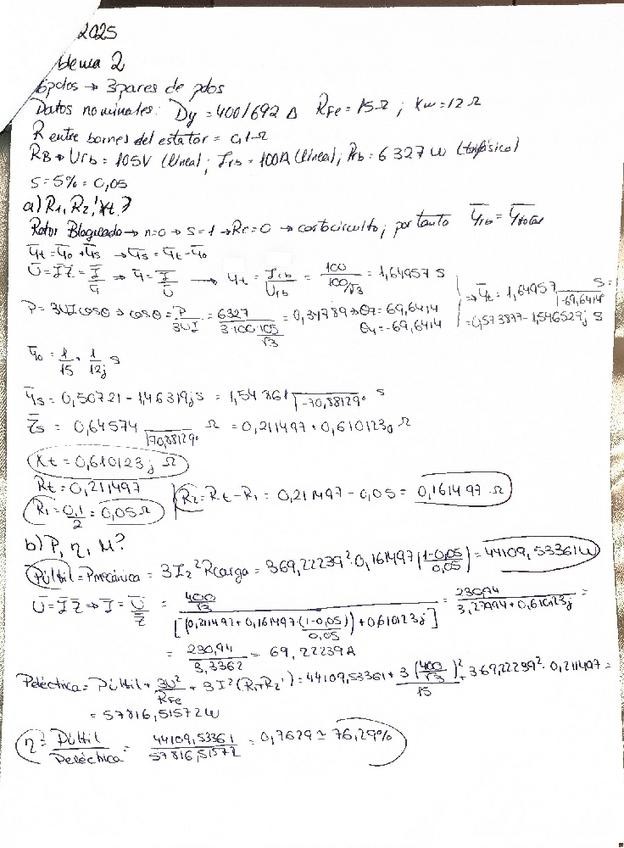 2025
blema 2
6 polos → 3 pares de polos
Datos nominales: Dy = 400/692 Δ RFe = 15Ω ; Xm = 12 Ω
R entre bornes del estator = 0,1 Ω
RB → Urb = 105V (línea) ; Irb = 100A (línea) ; Prb = 6 327 W (trifásico)
s = 5% = 0,05
a) R1, R2', Xt ?
Rotor Bloqueado → n=0 → s=1 → Rc=0 → cortocircuito, por tanto
Yt = Yo + Ys → Ys = Yt - Yo
U = IZ = I/Y → Y = I/U → Yt = Irb/Urb = 100/(100/√3) = 1,64957 S
P = 3UI cosθ → cosθ = P/3UI = 6327/(3·100·105/√3) = 0,34789 → θz = 69,6414 θy = -69,6414
→ Yt = 1,64957 |-69,6414 S = 0,573877 - 1,546529j S
Yo = 1/15 + 1/12j S
Ys = 0,50721 - 1,46319j S = 1,54861 |-70,88129º S
Zs = 0,64574 |70,88129º Ω = 0,211497 + 0,610123j Ω
Xt = 0,610123j Ω
Rt = 0,211497
R1 = 0,1/2 = 0,05 Ω
R2 = Rt - R1 = 0,211497 - 0,05 = 0,161497 Ω
b) P, η, M?
Pútil = Pmecánica = 3 I2² Rcarga = 3 69,22239² 0,161497 ((1-0,05)/0,05) = 44109,53361 W
U = IZ → I = U/Z = (400/√3)/[(0,211497 + 0,161497·(1-0,05)/0,05) + 0,610123j] = 230,94/(3,27994 + 0,610123j) =
= 230,94/3,3362 = 69,22239A
Peléctrica = Pútil + 3U²/RFe + 3I²(R1+R2') = 44109,53361 + 3(400/√3)²/15 + 3 69,22239² · 0,211497 =
= 57816,51572 W
η = Pútil/Peléctrica = 44109,53361/57816,51572 = 0,7629 ≃ 76,29%